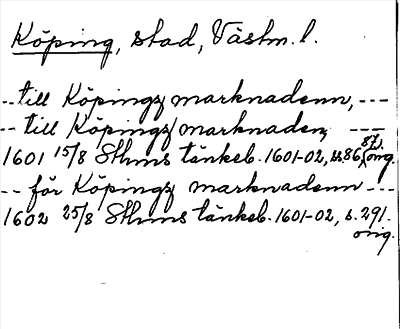 Köping, stad, Västm. l.
-- till Köpingz marknadenn, ---
-- till Köpingz marknaden, ---
1601 15/8 Sthms tänkeb. 1601-02, ss. 86, 87, orig.
-- för Köpingz marknadenn ---
1602 25/8 Sthms tänkeb. 1601-02, s. 291.
orig.